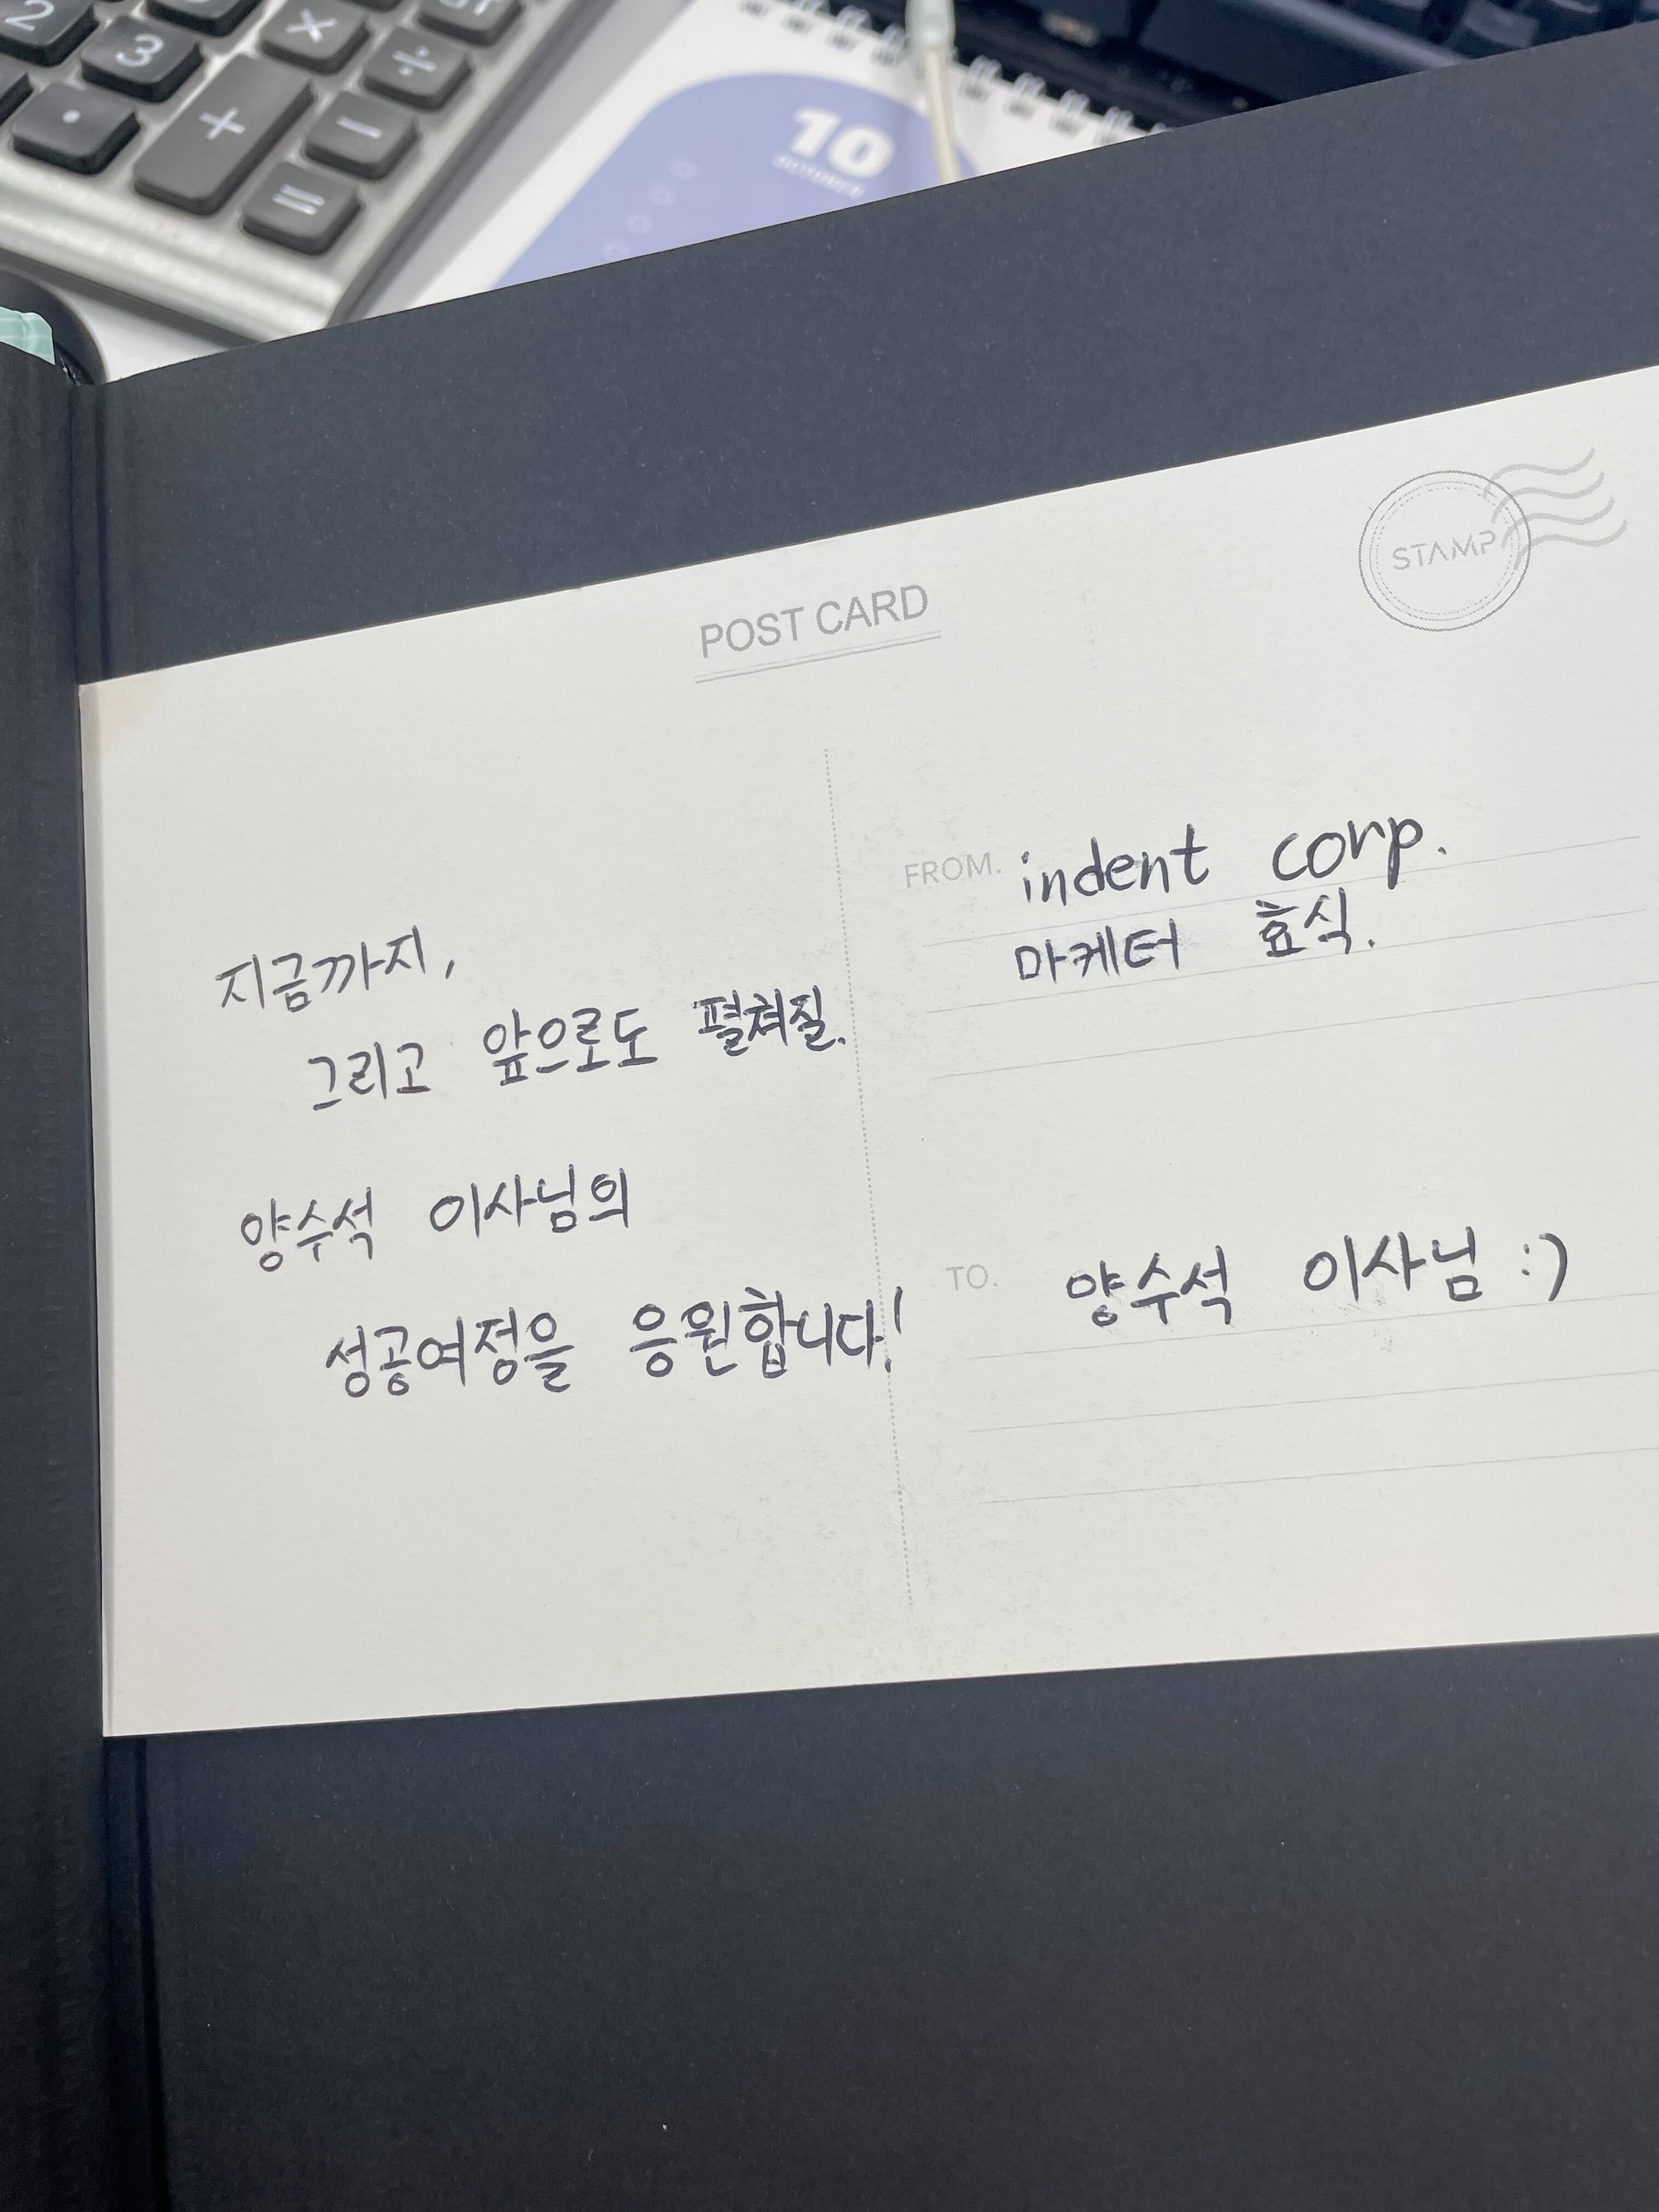 2
3
×
÷
.
+
−
=
10
OCTOBER
POST CARD
STAMP
지금까지,
그리고 앞으로도 펼쳐질.
양수석 이사님의
성공여정을 응원합니다!
FROM. indent corp.
마케터 효식.
TO. 양수석 이사님 :)